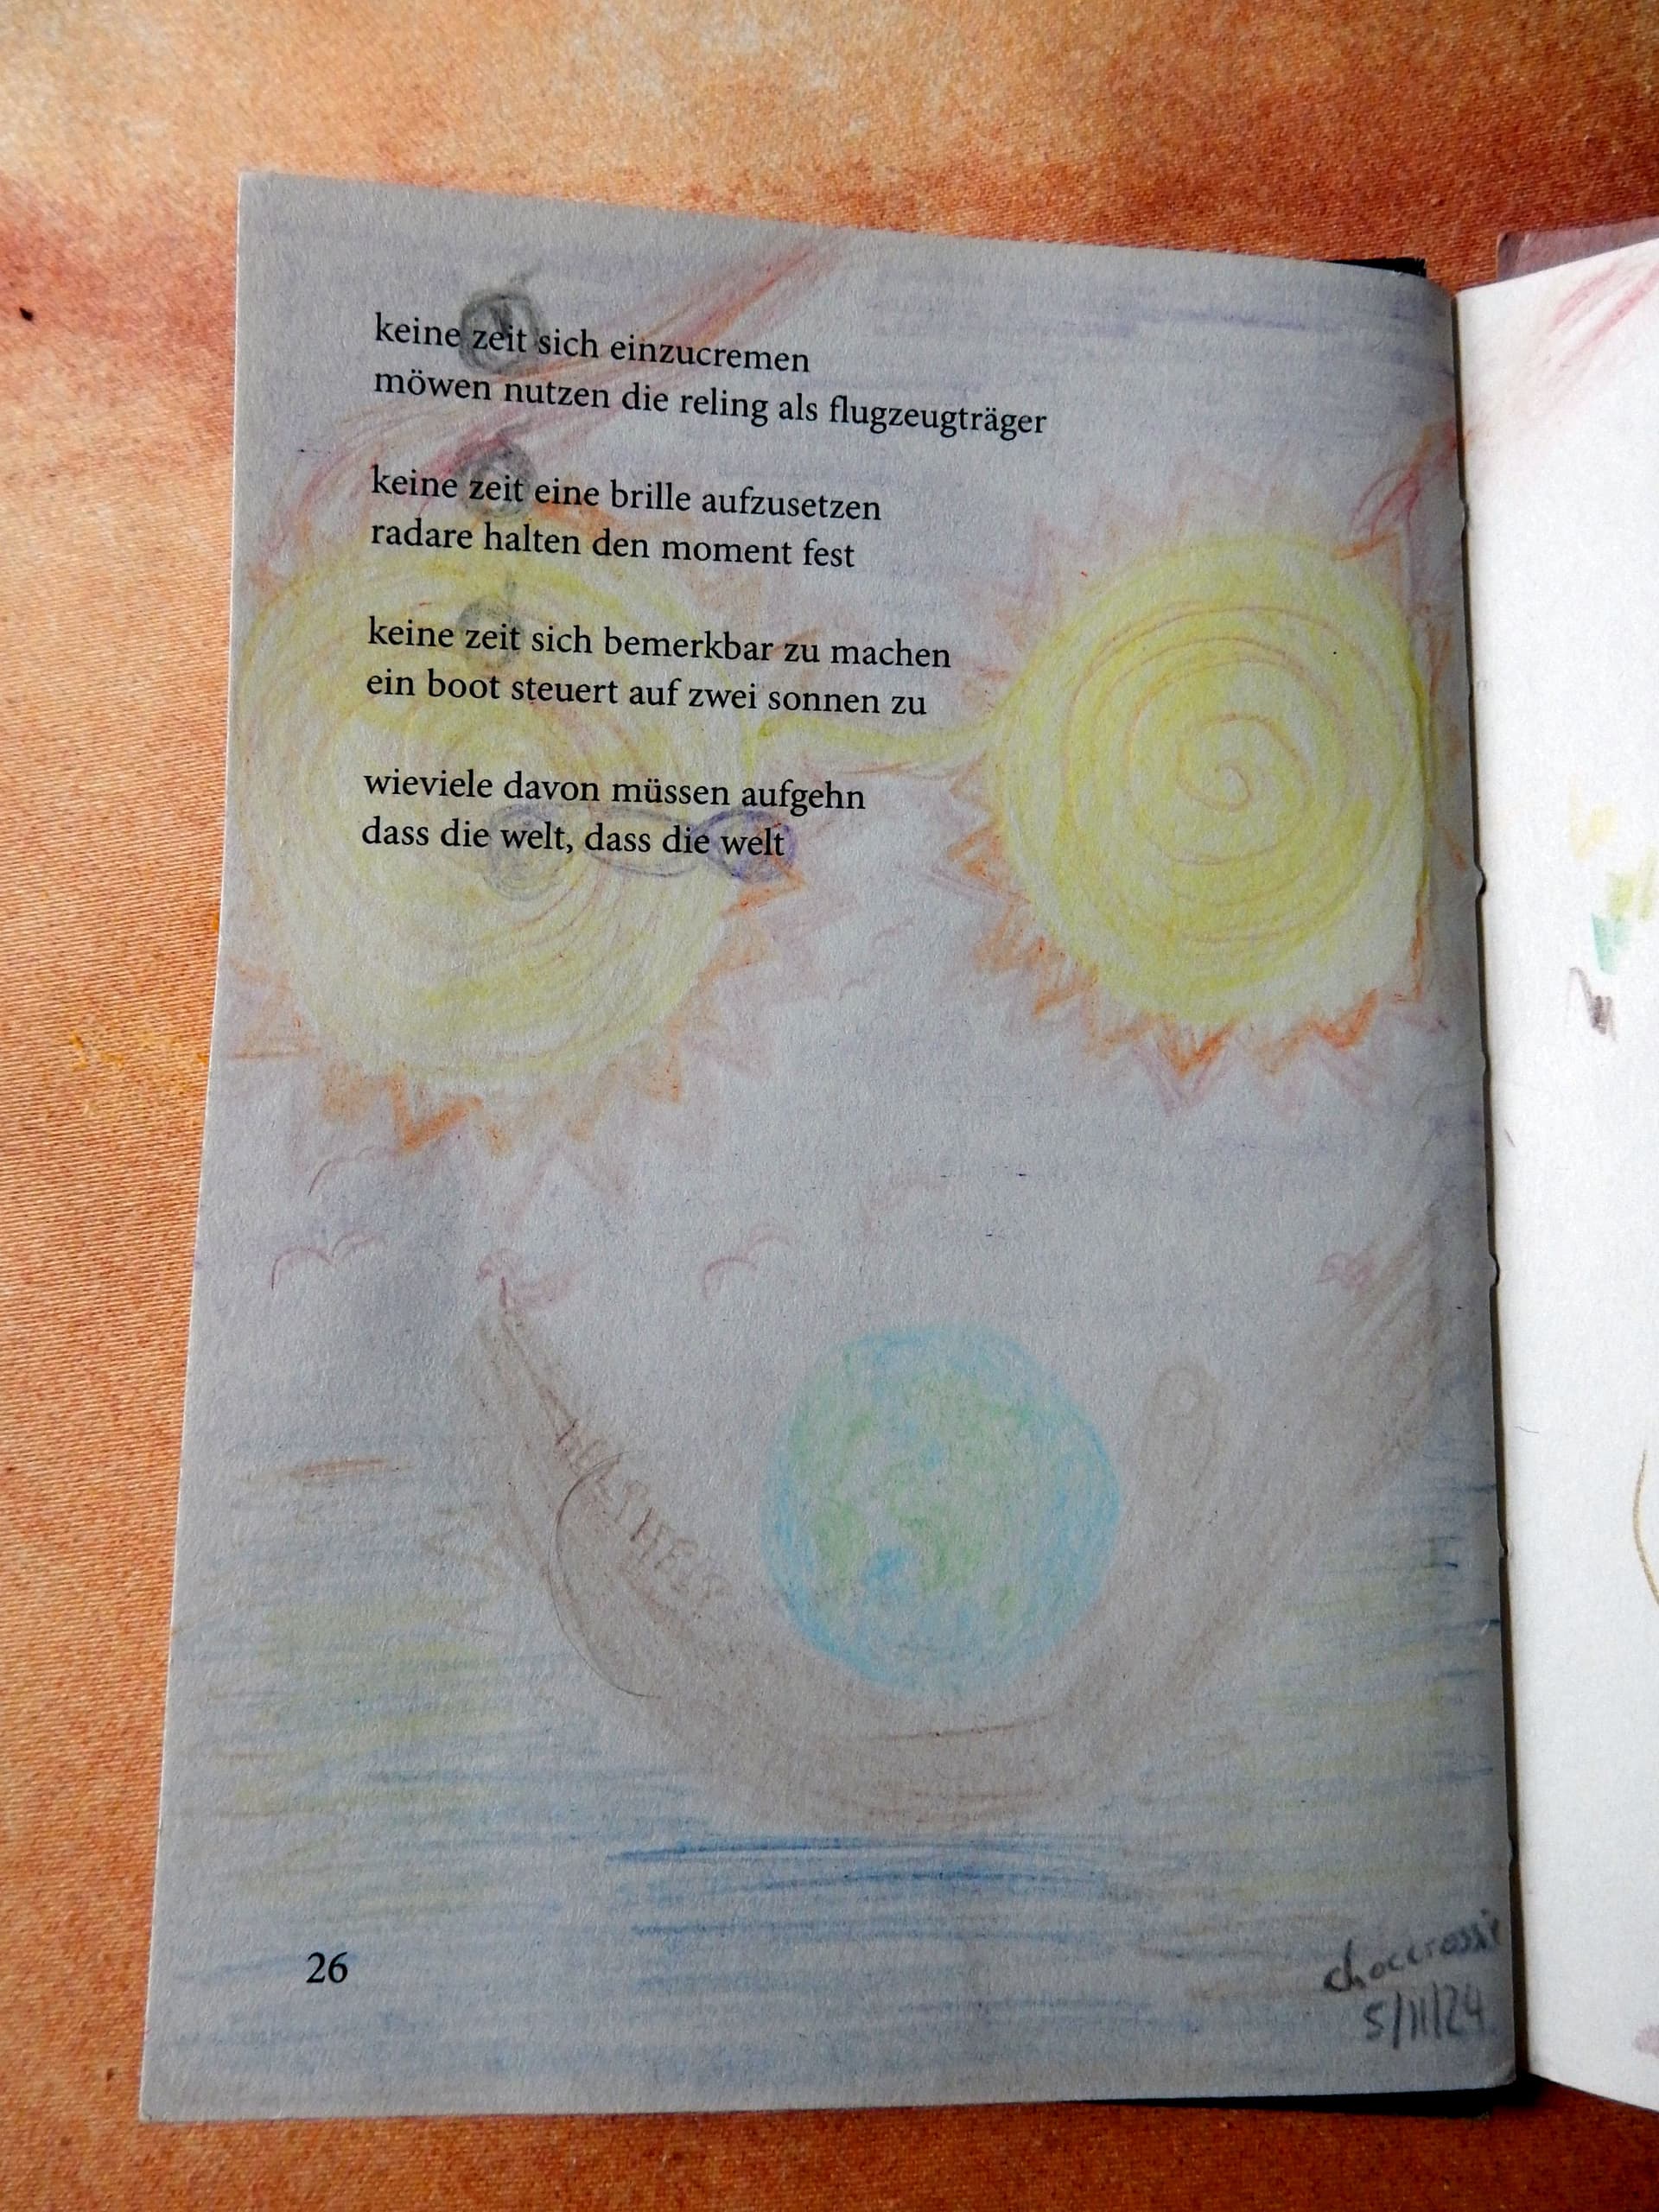 keine zeit sich einzucremen
möwen nutzen die reling als flugzeugträger
keine zeit eine brille aufzusetzen
radare halten den moment fest
keine zeit sich bemerkbar zu machen
ein boot steuert auf zwei sonnen zu
wieviele davon müssen aufgehn
dass die welt, dass die welt
26
choccrossi
5/11/24